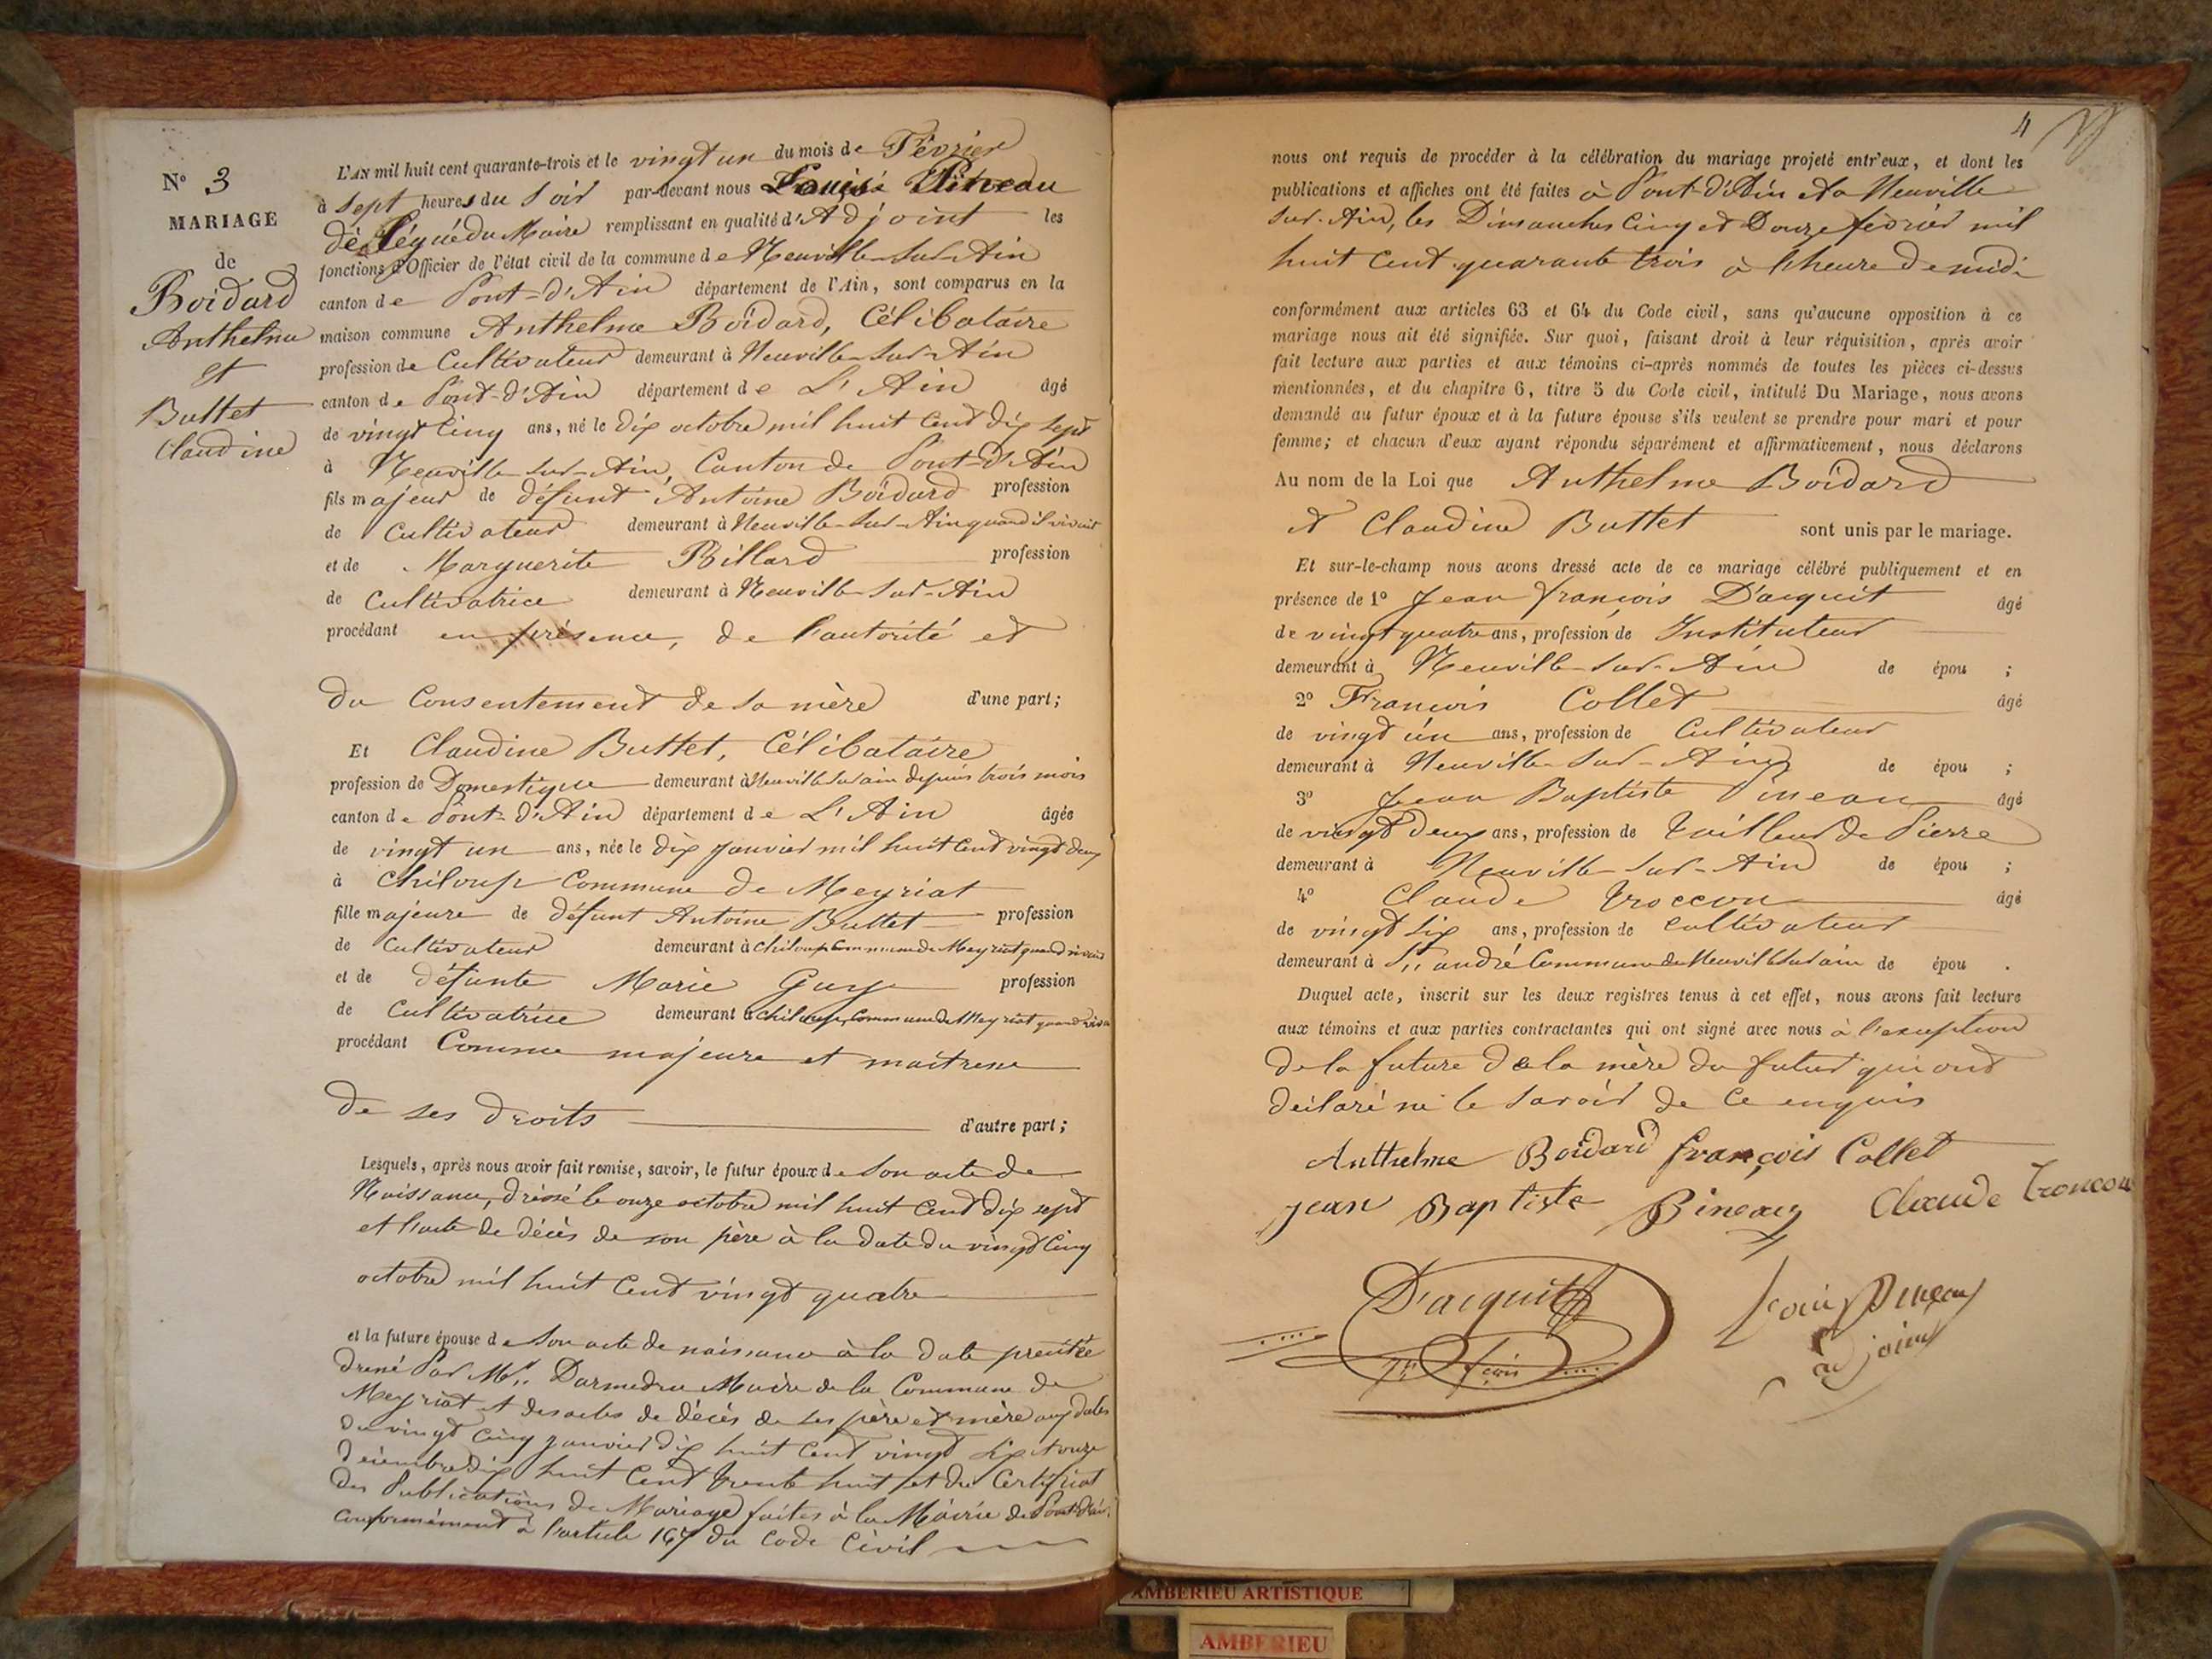 N° 3
MARIAGE
de
Boidard
Anthelme
et
Buttet
Claudine
L'AN mil huit cent quarante-trois et le vingt un du mois de Février
à sept heures du Soir par-devant nous Louis Pineau
délégué du Maire remplissant en qualité d'Adjoint les
fonctions d'Officier de l'état civil de la commune de Neuville-sur-Ain
canton de Pont-d'Ain département de l'Ain, sont comparus en la
maison commune Anthelme Boidard, Célibataire
profession de Cultivateur demeurant à Neuville-sur-Ain
canton de Pont-d'Ain département de L'Ain âgé
de vingt cinq ans, né le dix octobre mil huit cent dix sept
à Neuville-sur-Ain, Canton de Pont-d'Ain
fils majeur de défunt Antoine Boidard profession
de Cultivateur demeurant à Neuville-sur-Ain quand il vivait
et de Marguerite Billard profession
de Cultivatrice demeurant à Neuville-sur-Ain
procédant en présence, de l'autorité et
du Consentement de sa mère d'une part;
Et Claudine Buttet, Célibataire
profession de Domestique demeurant à Neuville sur ain depuis trois mois
canton de Pont-d'Ain département de L'Ain âgée
de vingt un ans, née le dix janvier mil huit cent vingt deux
à Chiloup Commune de Meyriat
fille majeure de défunt Antoine Buttet profession
de Cultivateur demeurant à Chiloup Commune de Meyriat quand vivait
et de défunte Marie Guy profession
de Cultivatrice demeurant à Chiloup, Commune de Meyriat quand vivait
procédant Comme majeure et maitresse
de ses droits d'autre part;
Lesquels, après nous avoir fait remise, savoir, le futur époux de Son acte de
Naissance, dressé le onze octobre mil huit cent dix sept
et l'acte de décès de son père à la date du vingt cinq
octobre mil huit Cent vingt quatre
et la future épouse de Son acte de naissance à la date précitée
dressé Par Mr. Darmedru Maire de la Commune de
Meyriat et des actes de décès de ses père et mère aux dates
du vingt cinq janvier dix huit cent vingt six et onze
décembre dix huit cent trente huit et du Certificat
des Publications de Mariage faites à la Mairie de Pont-d'Ain
conformément à l'article 167 du Code Civil
4
nous ont requis de procéder à la célébration du mariage projeté entr'eux, et dont les
publications et affiches ont été faites à Pont-d'Ain et à Neuville
sur-Ain, les Dimanches Cinq et Douze février mil
huit cent quarante trois à l'heure de midi
conformément aux articles 63 et 64 du Code civil, sans qu'aucune opposition à ce
mariage nous ait été signifiée. Sur quoi, faisant droit à leur réquisition, après avoir
fait lecture aux parties et aux témoins ci-après nommés de toutes les pièces ci-dessus
mentionnées, et du chapitre 6, titre 5 du Code civil, intitulé Du Mariage, nous avons
demandé au futur époux et à la future épouse s'ils veulent se prendre pour mari et pour
femme; et chacun d'eux ayant répondu séparément et affirmativement, nous déclarons
Au nom de la Loi que Anthelme Boidard
et Claudine Buttet sont unis par le mariage.
Et sur-le-champ nous avons dressé acte de ce mariage célébré publiquement et en
présence de 1° Jean françois D'acquit âgé
de vingt quatre ans, profession de Instituteur
demeurant à Neuville-sur-Ain de épou ;
2° François Collet âgé
de vingt un ans, profession de Cultivateur
demeurant à Neuville-sur-Ain de épou ;
3° Jean Baptiste Pineau âgé
de vingt deux ans, profession de Tailleur de Pierre
demeurant à Neuville-sur-Ain de épou ;
4° Claude Troccon âgé
de vingt six ans, profession de cultivateur
demeurant à St. andré Commune de Neuville sur ain de épou .
Duquel acte, inscrit sur les deux registres tenus à cet effet, nous avons fait lecture
aux témoins et aux parties contractantes qui ont signé avec nous à l'exception
de la future & de la mère du futur qui ont
déclaré ne le savoir de ce enquis
Anthelme Boidard françois Collet
jean Baptiste Pineau Claude Troncon
D'acquit
Louis Pineau
adjoint
AMBERIEU ARTISTIQUE
AMBERIEU